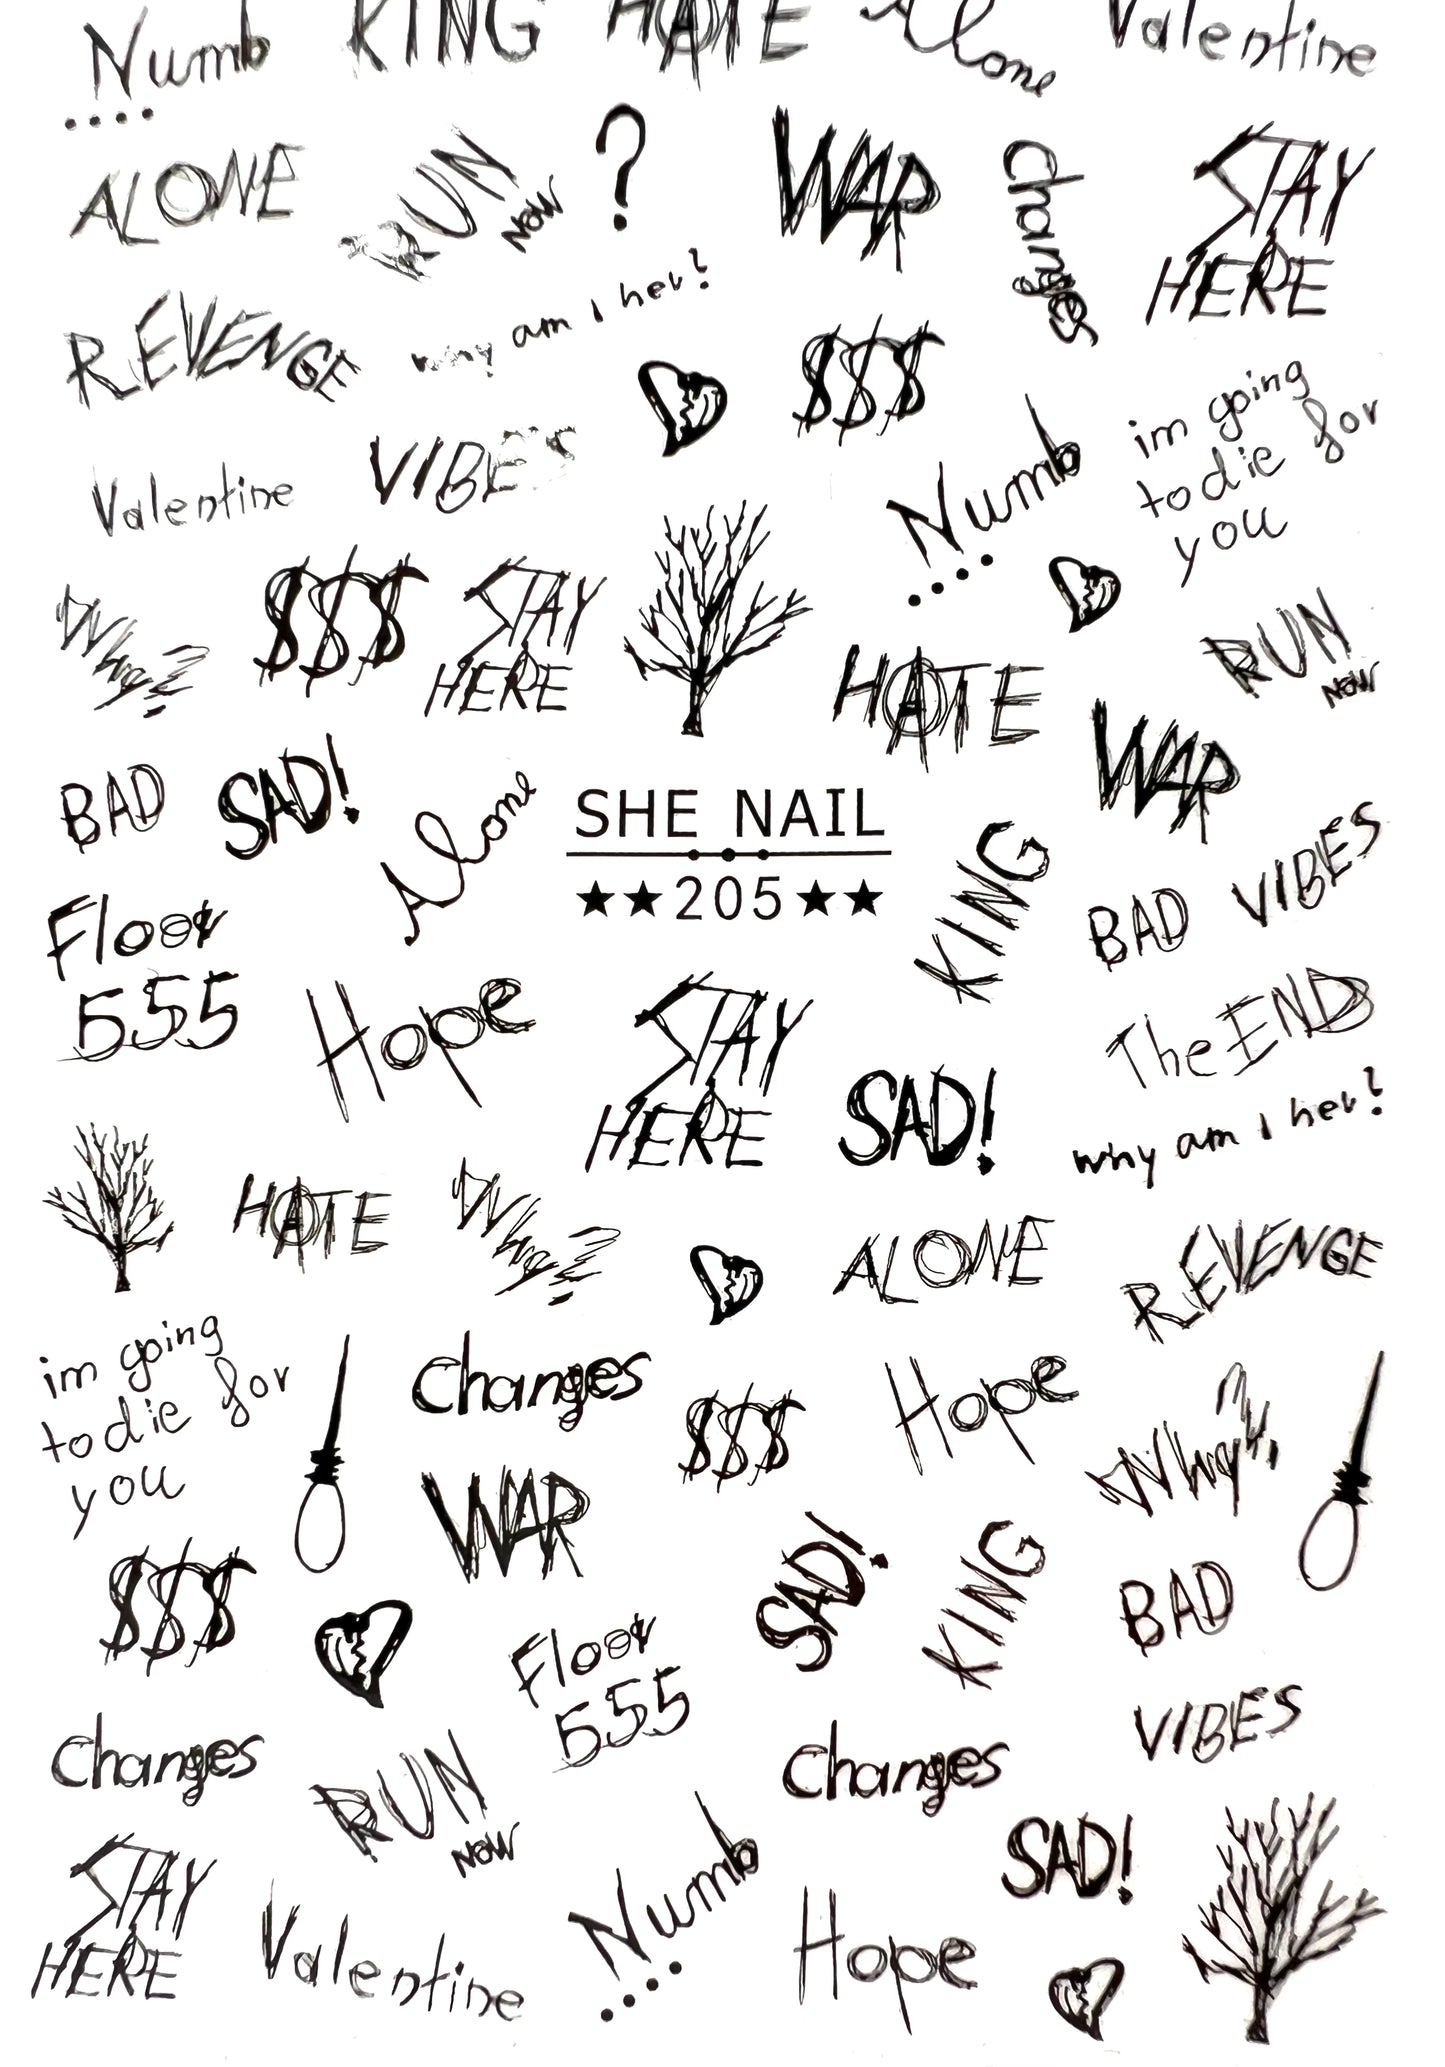 Numb
KING
HATE
Alone
Valentine
ALONE
RUN
NOW
?
WAR
changes
STAY
HERE
REVENGE
why am I her?
$$$
im going
to die for
you
Valentine
VIBES
Numb
Why?
$$$
STAY
HERE
HATE
RUN
NOW
WAR
BAD
SAD!
Alone
SHE NAIL
★★205★★
KING
BAD VIBES
Floor
555
Hope
STAY
HERE
The END
SAD!
why am I her?
HATE
Why?
ALONE
REVENGE
im going
to die for
you
changes
$$$
Hope
Why?
WAR
$$$
SAD!
KING
BAD
Floor
555
VIBES
changes
RUN
NOW
changes
SAD!
STAY
HERE
Valentine
Numb
Hope